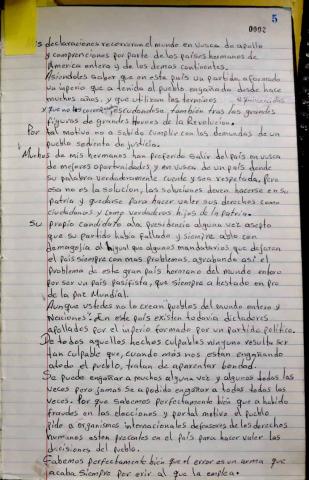 5
0002
s declaraciones recorreran el mundo en vusca de apollo
y comprenciones por parte de los paises hermanos de
America entera y de los demas continentes.
Asiendoles saber que en este país un partido a formado
un inperio que a tenido al pueblo engañado desde hace
muchos años, y que utilizan los terminos equivocados
y que no les corresponde escudandose tambien tras las grandes
figuras de grandes Heroes de la Revolucion.
Por tal motivo no a sabido cumplir con las demandas de un
pueblo sediento de justicia.
Muchos de mis hermanos han preferido salir del país en vusca
de mejores oportunidades y en vusca de un país donde
su palabra verdaderamente cuente y sea respetada, Pero
esa no es la solucion, las soluciones deven hacerse en su
patria y quedarse para hacer valer sus derechos como
ciudadanos y como verdaderos hijos de la patria.
Su propio candidato a la presidencia alguna vez asepto
que su partido habia fallado y siempre ablo con
damagolia al higual que algunos mandatarios que dejaron
el país siempre con mas problemas, agrabando asi el
problema de este gran país hermano del mundo entero
por ser un país pasifista, que siempre a hestado en pro
de la paz Mundial.
Aunque ustedes no lo crean pueblos del mundo entero y
Naciones. En este país existen todavia dictadores
apollados por el inperio formado por un partido politico.
De todos aquellos hechos culpables ninguno resulta ser
tan culpable que, cuando mas nos estan engañando
a todo el pueblo, tratan de aparentar bondad.
Se puede engañar a muchos alguna vez y algunos todas las
veces pero jamas se a podido engañar a todos todas las
veces. Por que sabemos perfectamente bien que a habido
fraudes en las elecciones y por tal motivo el pueblo
pide a organismos internacionales defensores de los derechos
humanos esten presentes en el país para hacer valer las
decisiones del pueblo.
Sabemos perfectamente bien que el error es un arma que
acaba siempre por erir al que la emplea.